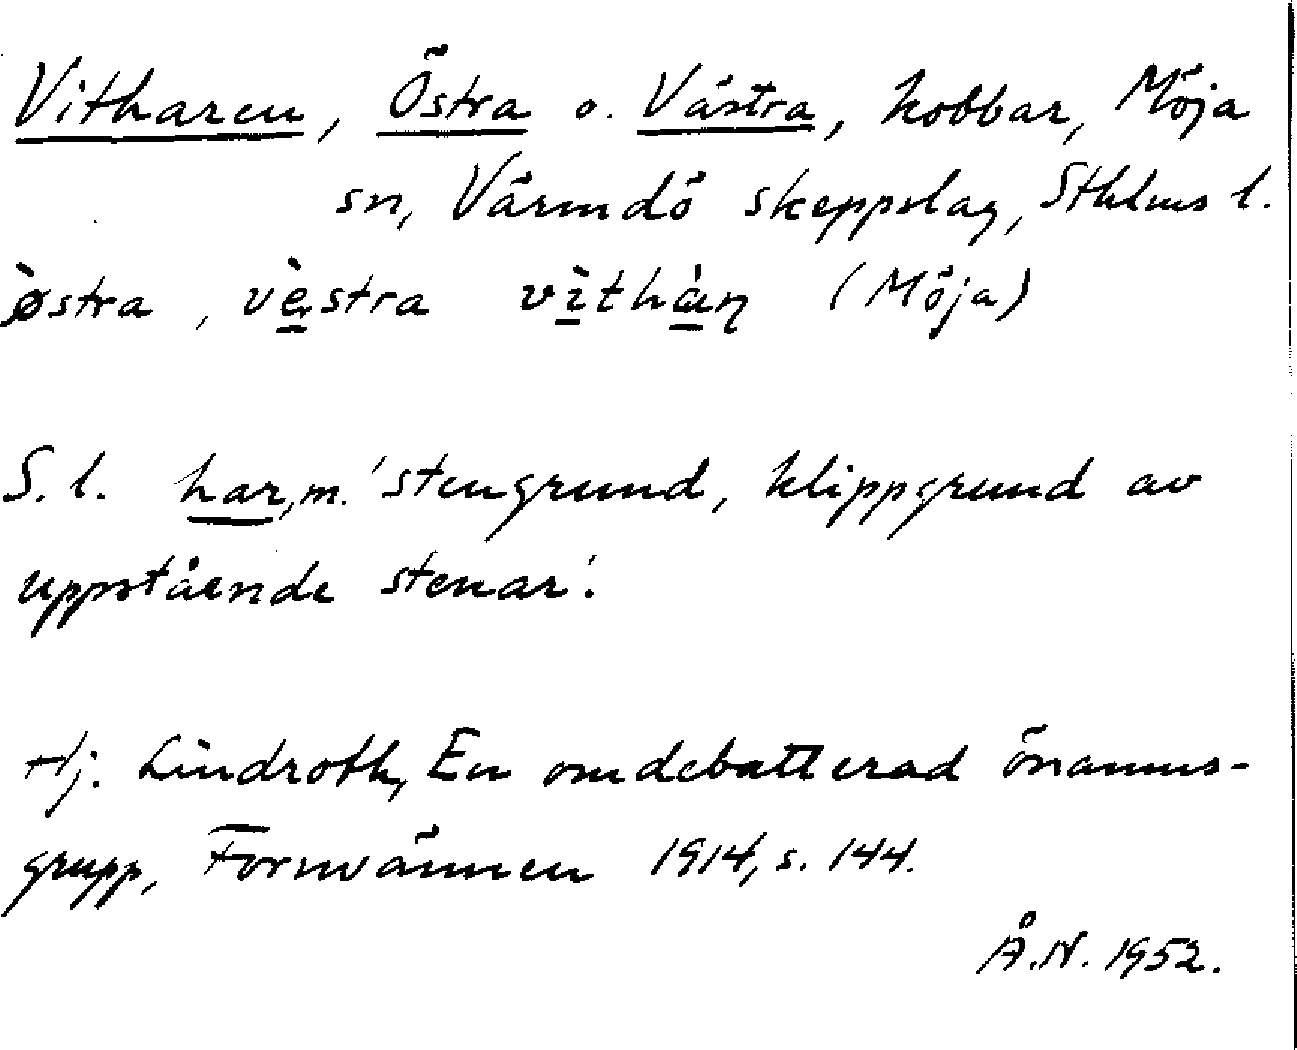 Vitharen, Östra o. Västra, kobbar, Möja
sn, Värmdö skeppslag, Sthlms l.
östra, vèstra vìthàn (Möja)
S. l. har, m. 'stengrund, klippgrund av
uppstående stenar'.
Hj. Lindroth, En omdebatterad önamns-
grupp, Fornvännen 1914, s. 144.
Å.N. 1952.